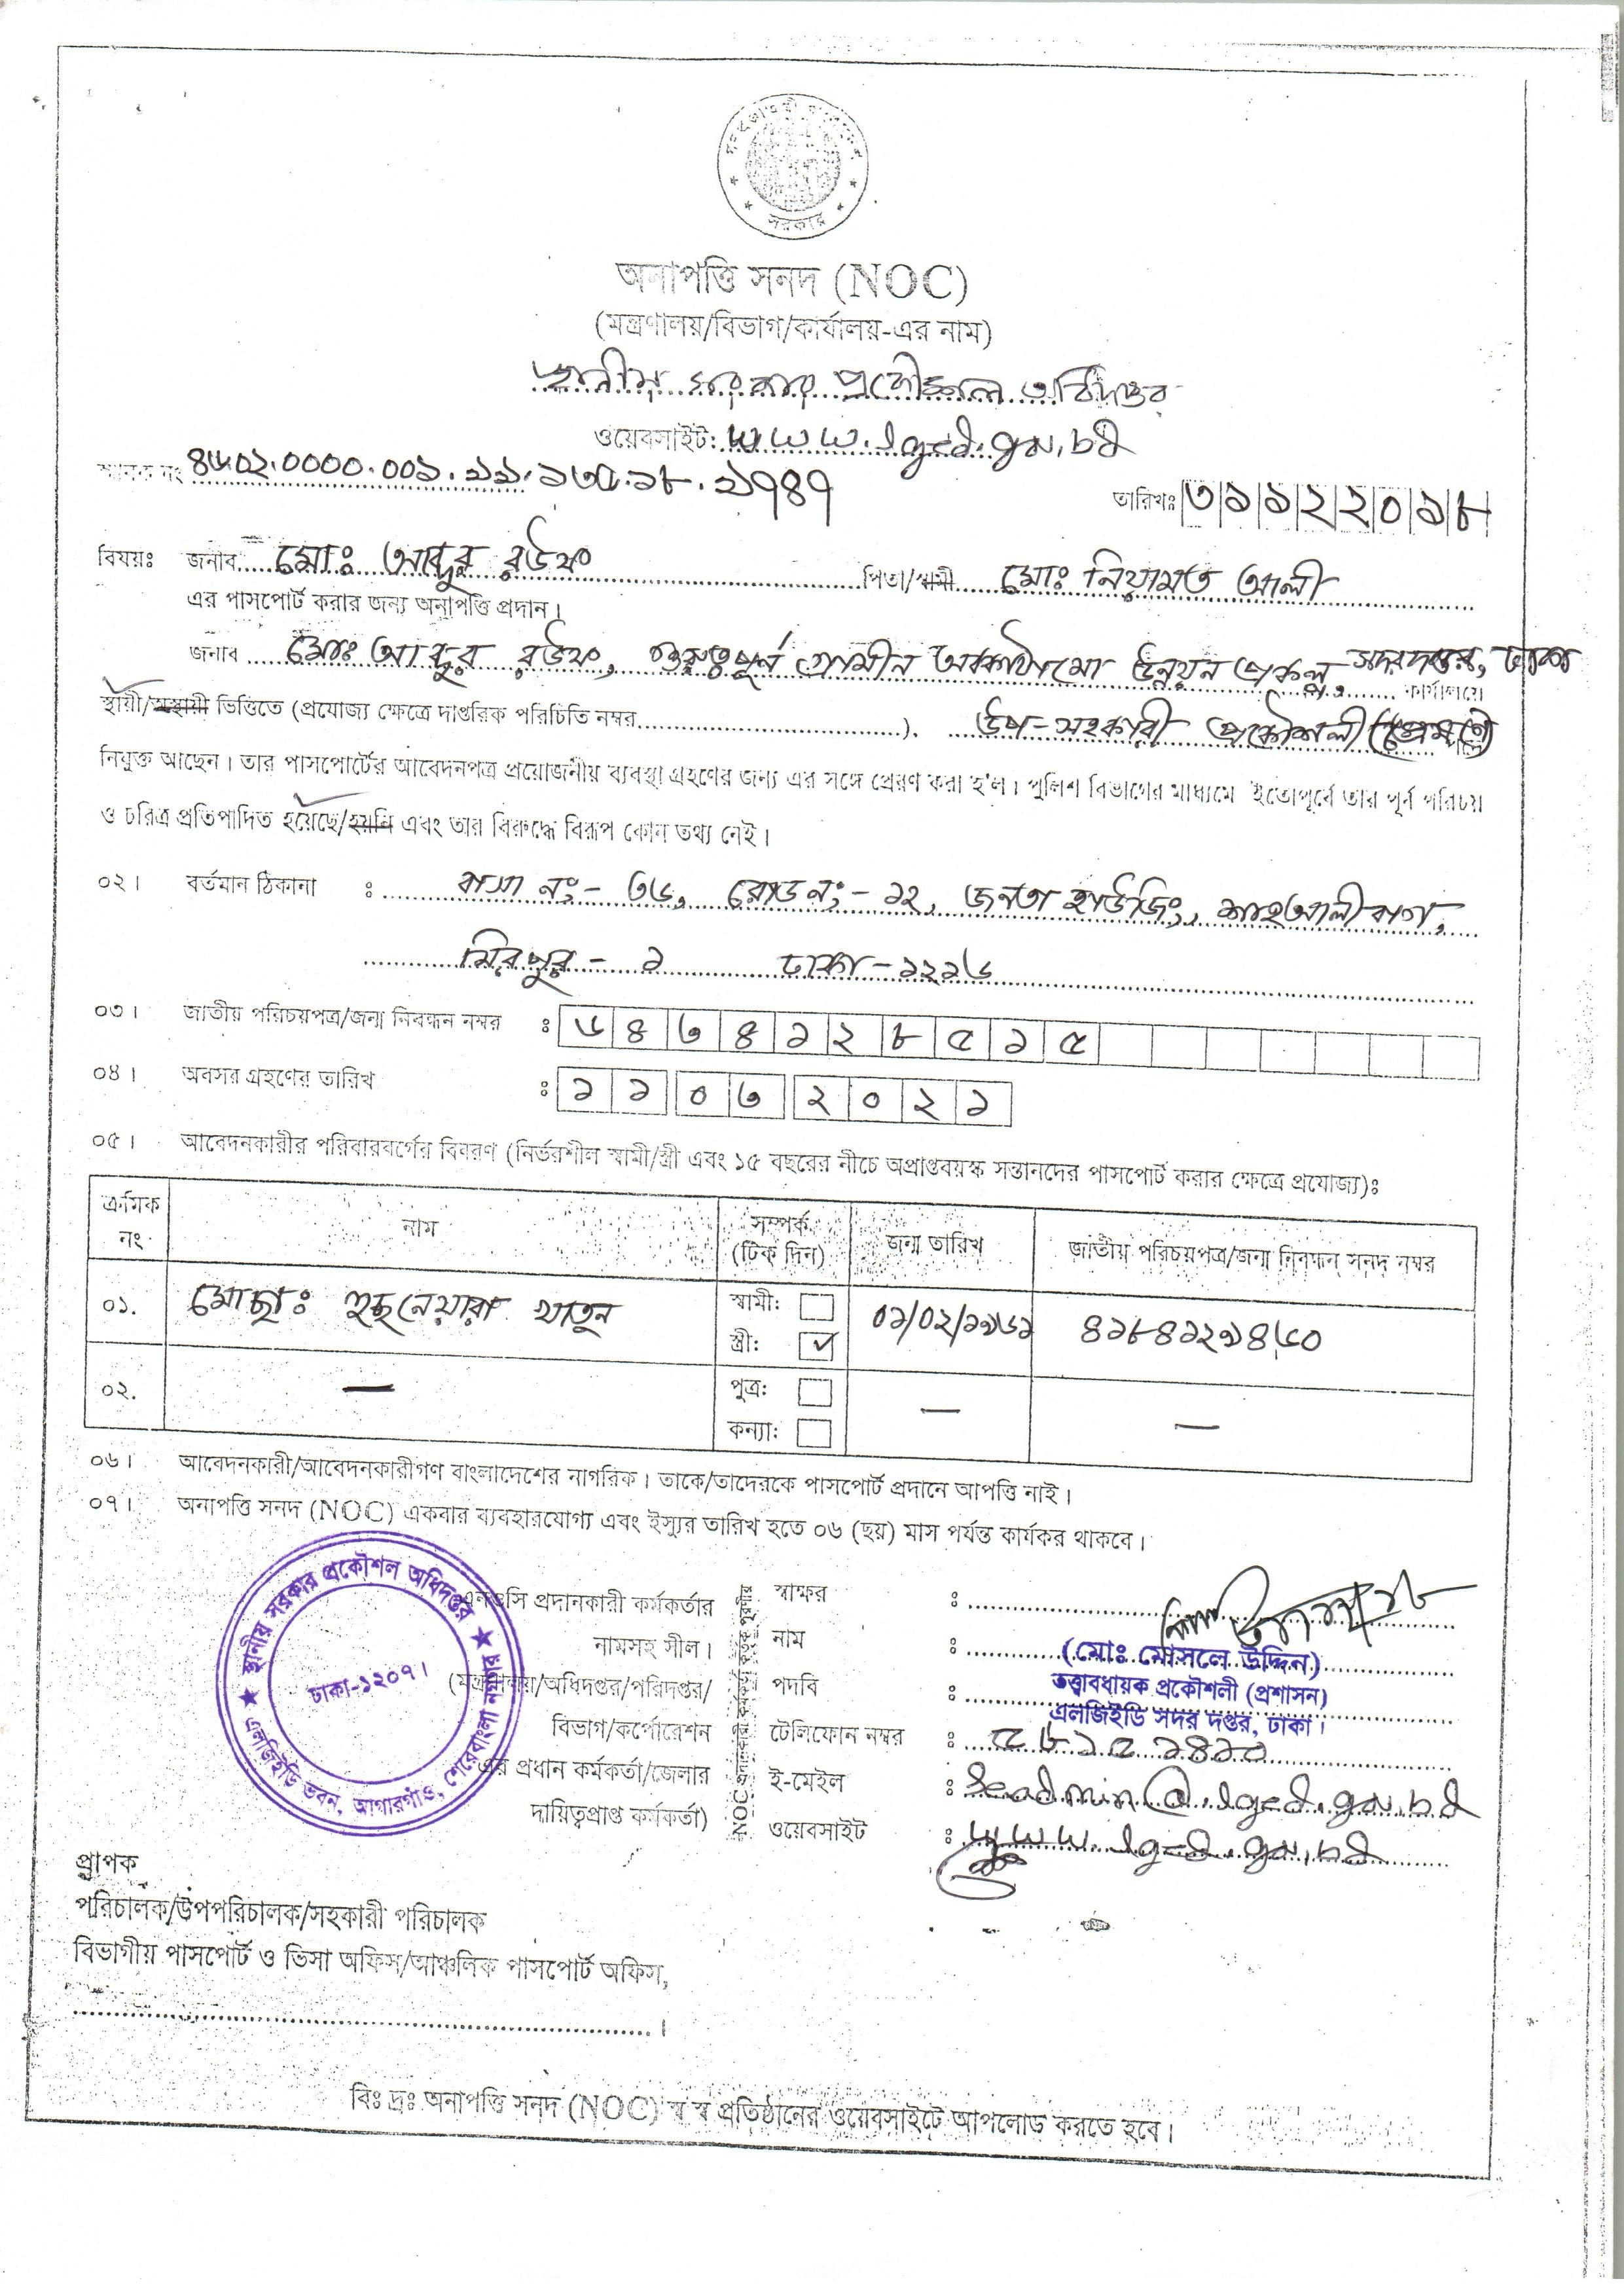 সরকার
অনাপত্তি সনদ (NOC)
(মন্ত্রণালয়/বিভাগ/কার্যালয়-এর নাম)
স্থানীয় সরকার প্রকৌশল অধিদপ্তর
ওয়েবসাইট: www.lged.gov.bd
স্মারক নং ৪৬.০২.০০০০.০০১.১১.১৩৫.১৮.১৭৪৭
তারিখঃ ৩১১২২০১৮
বিষয়ঃ জনাব মোঃ আব্দুর রউফ পিতা/স্বামী মোঃ নিয়ামত আলী
এর পাসপোর্ট করার জন্য অনাপত্তি প্রদান।
জনাব মোঃ আব্দুর রউফ, গুরুত্বপূর্ণ গ্রামীন অবকাঠামো উন্নয়ন প্রকল্প, সদর দপ্তর, ঢাকা কার্যালয়ে
স্থায়ী/অস্থায়ী ভিত্তিতে (প্রযোজ্য ক্ষেত্রে দাপ্তরিক পরিচিতি নম্বর..........). উপ-সহকারী প্রকৌশলী (প্রেষণে)
নিযুক্ত আছেন। তার পাসপোর্টের আবেদনপত্র প্রয়োজনীয় ব্যবস্থা গ্রহণের জন্য এর সঙ্গে প্রেরণ করা হ'ল। পুলিশ বিভাগের মাধ্যমে ইতোপূর্বে তার পূর্ব পরিচয়
ও চরিত্র প্রতিপাদিত হয়েছে/হয়নি এবং তার বিরুদ্ধে বিরূপ কোন তথ্য নেই।
০২। বর্তমান ঠিকানা : বাসা নং:- ৩৬, রোড নং:- ১২, জনতা হাউজিং, শাহআলী বাগ,
মিরপুর - ১ ঢাকা - ১২১৬
০৩। জাতীয় পরিচয়পত্র/জন্ম নিবন্ধন নম্বর : ৬৪৭৪১২৮৫১৫
০৪। অবসর গ্রহণের তারিখ : ১১ ০৭ ২০২১
০৫। আবেদনকারীর পরিবারবর্গের বিবরণ (নির্ভরশীল স্বামী/স্ত্রী এবং ১৫ বছরের নীচে অপ্রাপ্তবয়স্ক সন্তানদের পাসপোর্ট করার ক্ষেত্রে প্রযোজ্য)ঃ
ক্রমিক নং নাম সম্পর্ক (টিক্ দিন) জন্ম তারিখ জাতীয় পরিচয়পত্র/জন্ম নিবন্ধন সনদ নম্বর
০১. মোছাঃ হুছনেয়ারা খাতুন স্বামী: স্ত্রী: ✓ ০১/০২/১৯৬১ ৪১৮৪১২৯৪৬০
০২. — পুত্র: কন্যা: — —
০৬। আবেদনকারী/আবেদনকারীগণ বাংলাদেশের নাগরিক। তাকে/তাদেরকে পাসপোর্ট প্রদানে আপত্তি নাই।
০৭। অনাপত্তি সনদ (NOC) একবার ব্যবহারযোগ্য এবং ইস্যুর তারিখ হতে ০৬ (ছয়) মাস পর্যন্ত কার্যকর থাকবে।
★ স্থানীয় সরকার প্রকৌশল অধিদপ্তর ★
ঢাকা-১২০৭।
এলজিইডি ভবন, আগারগাঁও, শেরেবাংলা নগর
এনওসি প্রদানকারী কর্মকর্তার
নামসহ সীল।
(মন্ত্রণালয়/অধিদপ্তর/পরিদপ্তর/
বিভাগ/কর্পোরেশন
এর প্রধান কর্মকর্তা/জেলার
দায়িত্বপ্রাপ্ত কর্মকর্তা)
স্বাক্ষর :
নাম : (মোঃ মোসলে উদ্দিন)
পদবি : তত্ত্বাবধায়ক প্রকৌশলী (প্রশাসন)
এলজিইডি সদর দপ্তর, ঢাকা।
টেলিফোন নম্বর : ৫৮১৫১৪১০
ই-মেইল : seadmin@lged.gov.bd
ওয়েবসাইট : www.lged.gov.bd
প্রাপক
পরিচালক/উপপরিচালক/সহকারী পরিচালক
বিভাগীয় পাসপোর্ট ও ভিসা অফিস/আঞ্চলিক পাসপোর্ট অফিস,
বিঃ দ্রঃ অনাপত্তি সনদ (NOC) স্ব স্ব প্রতিষ্ঠানের ওয়েবসাইটে আপলোড করতে হবে।